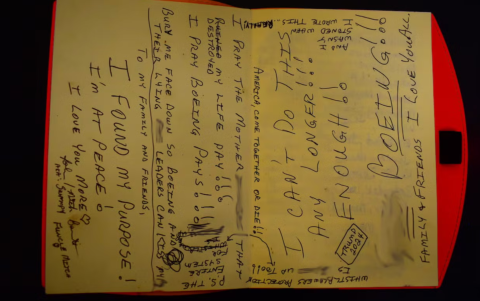 FAMILY + FRIENDS I LOVE YOU ALL
BOEING!!!
AND I
WASN'T
STONED WHEN
I WROTE THIS.
I CAN'T DO THIS
ANY LONGER!!!
ENOUGH!!
TRUMP 2024
WHISTLEBLOWERS PROTECTION
TOO!!
AMERICA, COME TOGETHER OR DIE!!
REALLY!
I PRAY THE MOTHER THAT
RUINED MY LIFE PAY!!!
DESTROYED
I PRAY BOEING PAYS!!!
P.S. THE
ENTIRE
SYSTEM
BURY ME FACE DOWN SO BOEING AND
THEIR LYING LEADERS CAN KISS MY
TO MY FAMILY AND FRIENDS,
I FOUND MY PURPOSE!
I'M AT PEACE!
I LOVE YOU MORE